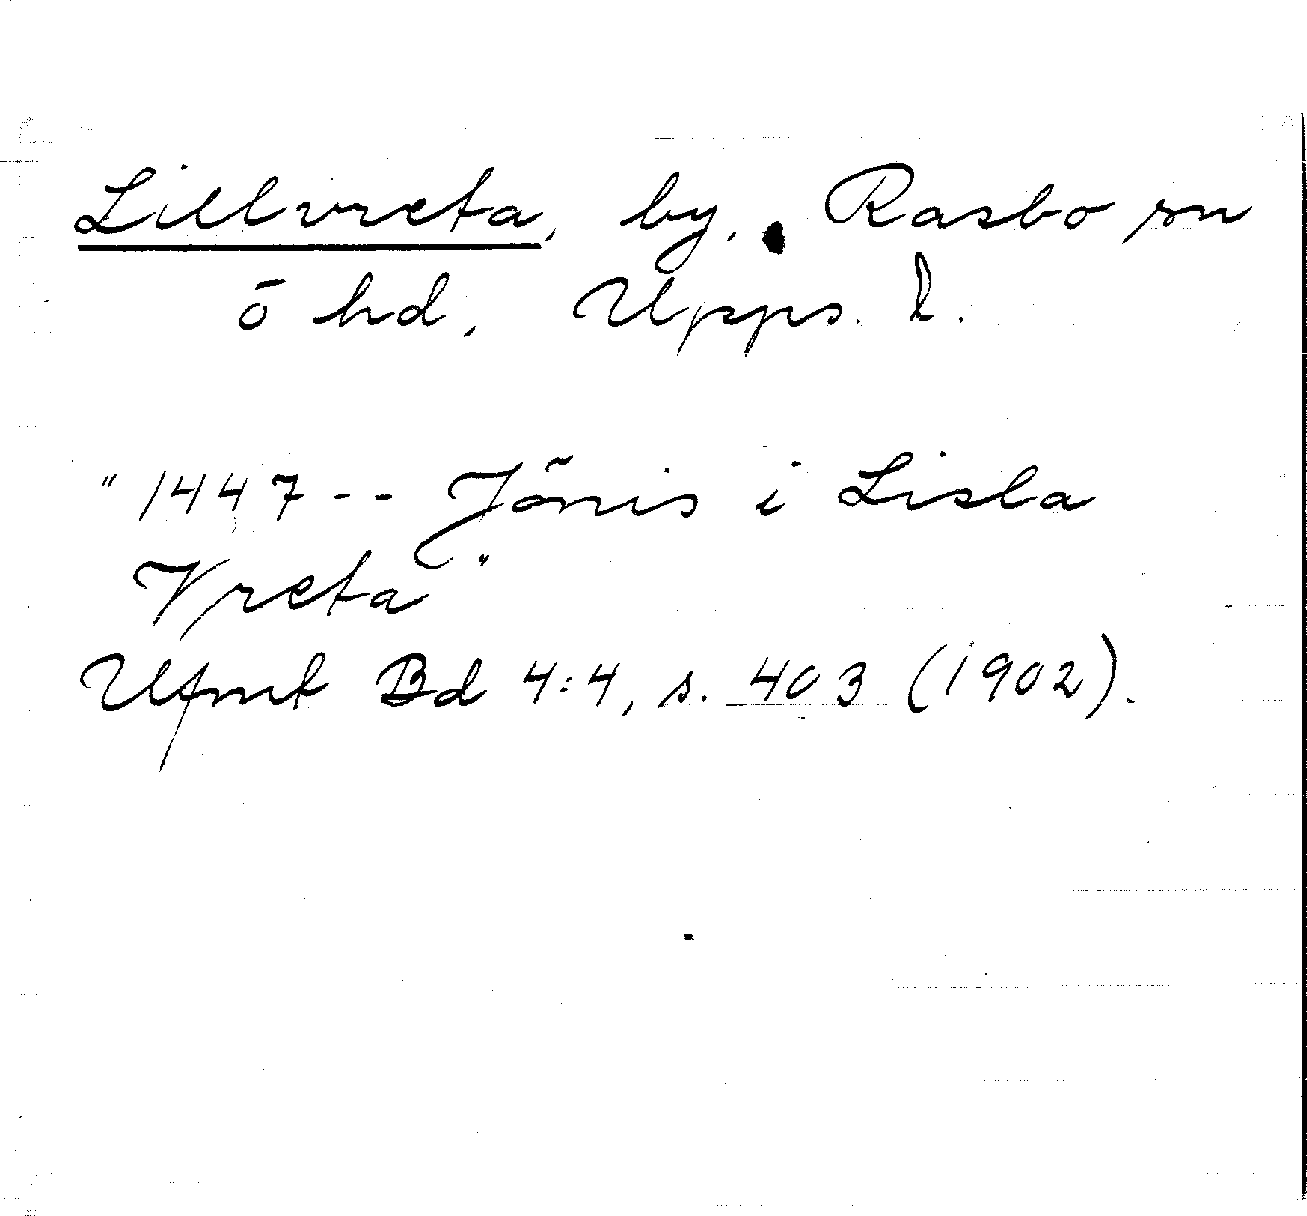 Lillvreta, by, Rasbo sn
ö hd, Upps. l.
"1447 -- Jönis i Lisla
Vreta"
Ufmt Bd 4:4, s. 403 (1902).